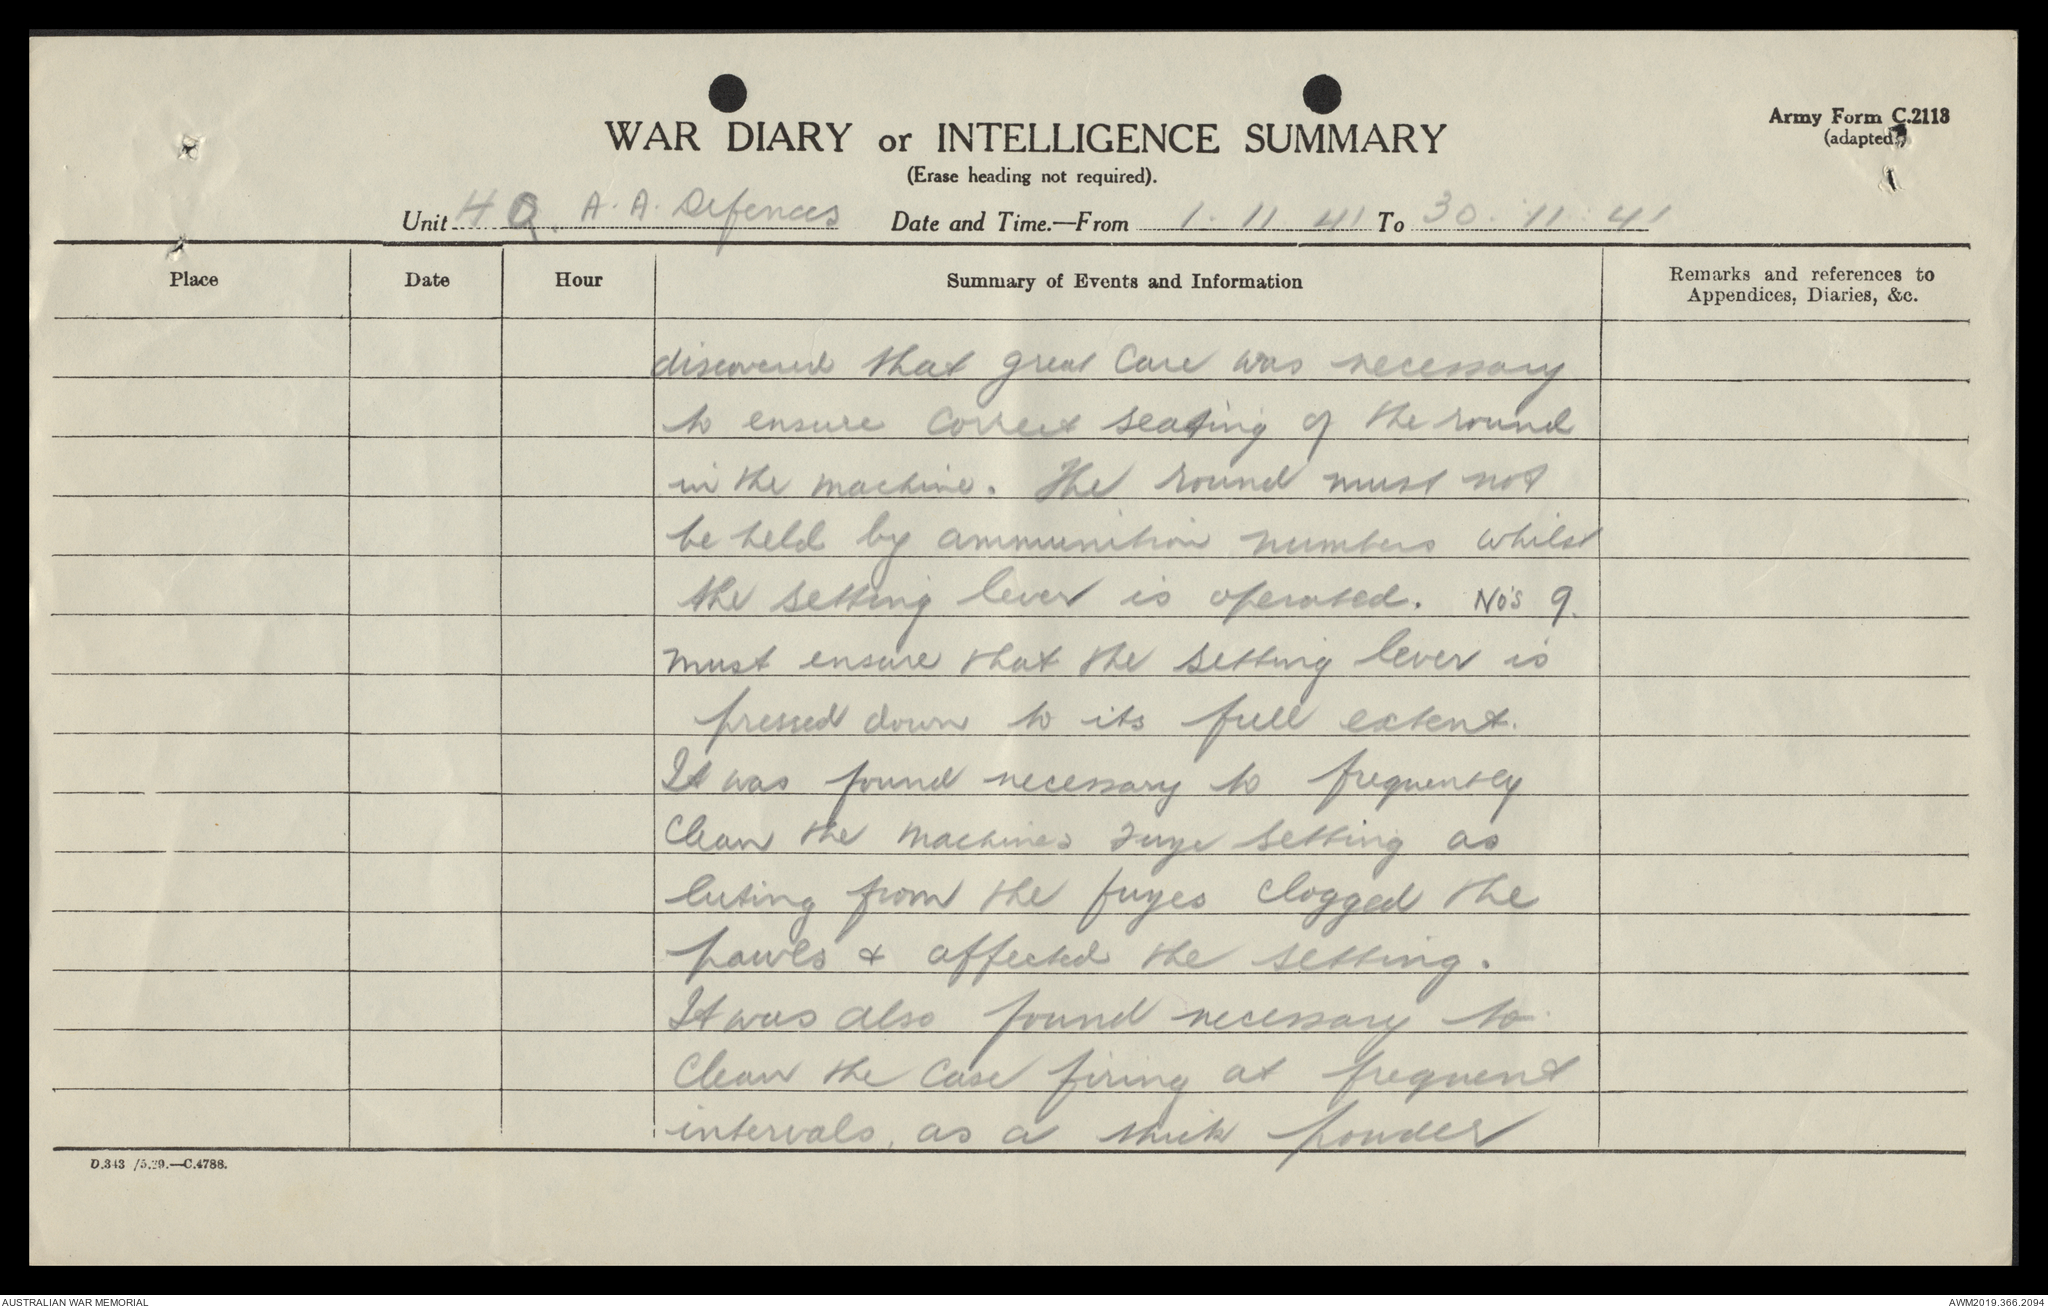 Army Form C.2118
(adapted)
WAR DIARY or INTELLIGENCE SUMMARY
(Erase heading not required).
Unit HQ. A.A. Defences Date and Time.—From 1.11.41 To 30.11.41
Place Date Hour Summary of Events and Information Remarks and references to Appendices, Diaries, &c.
discovered that great care was necessary
to ensure correct seating of the round
in the machine. The round must not
be held by ammunition numbers whilst
the setting lever is operated. No's 9.
must ensure that the setting lever is
pressed down to its full extent.
It was found necessary to frequently
clean the machines fuze setting as
luting from the fuzes clogged the
pawls & affected the setting.
It was also found necessary to
clean the case firing at frequent
intervals, as a thick powder
D.343 /5.39.—C.4788.
AUSTRALIAN WAR MEMORIAL
AWM2019.366.2094